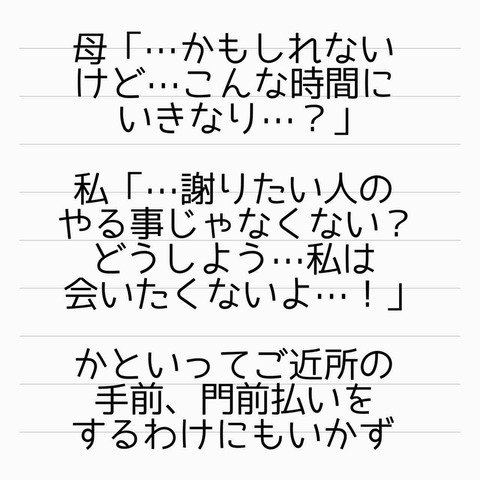 母「…かもしれない
けど…こんな時間に
いきなり…？」
私「…謝りたい人の
やる事じゃなくない？
どうしよう…私は
会いたくないよ…！」
かといってご近所の
手前、門前払いを
するわけにもいかず